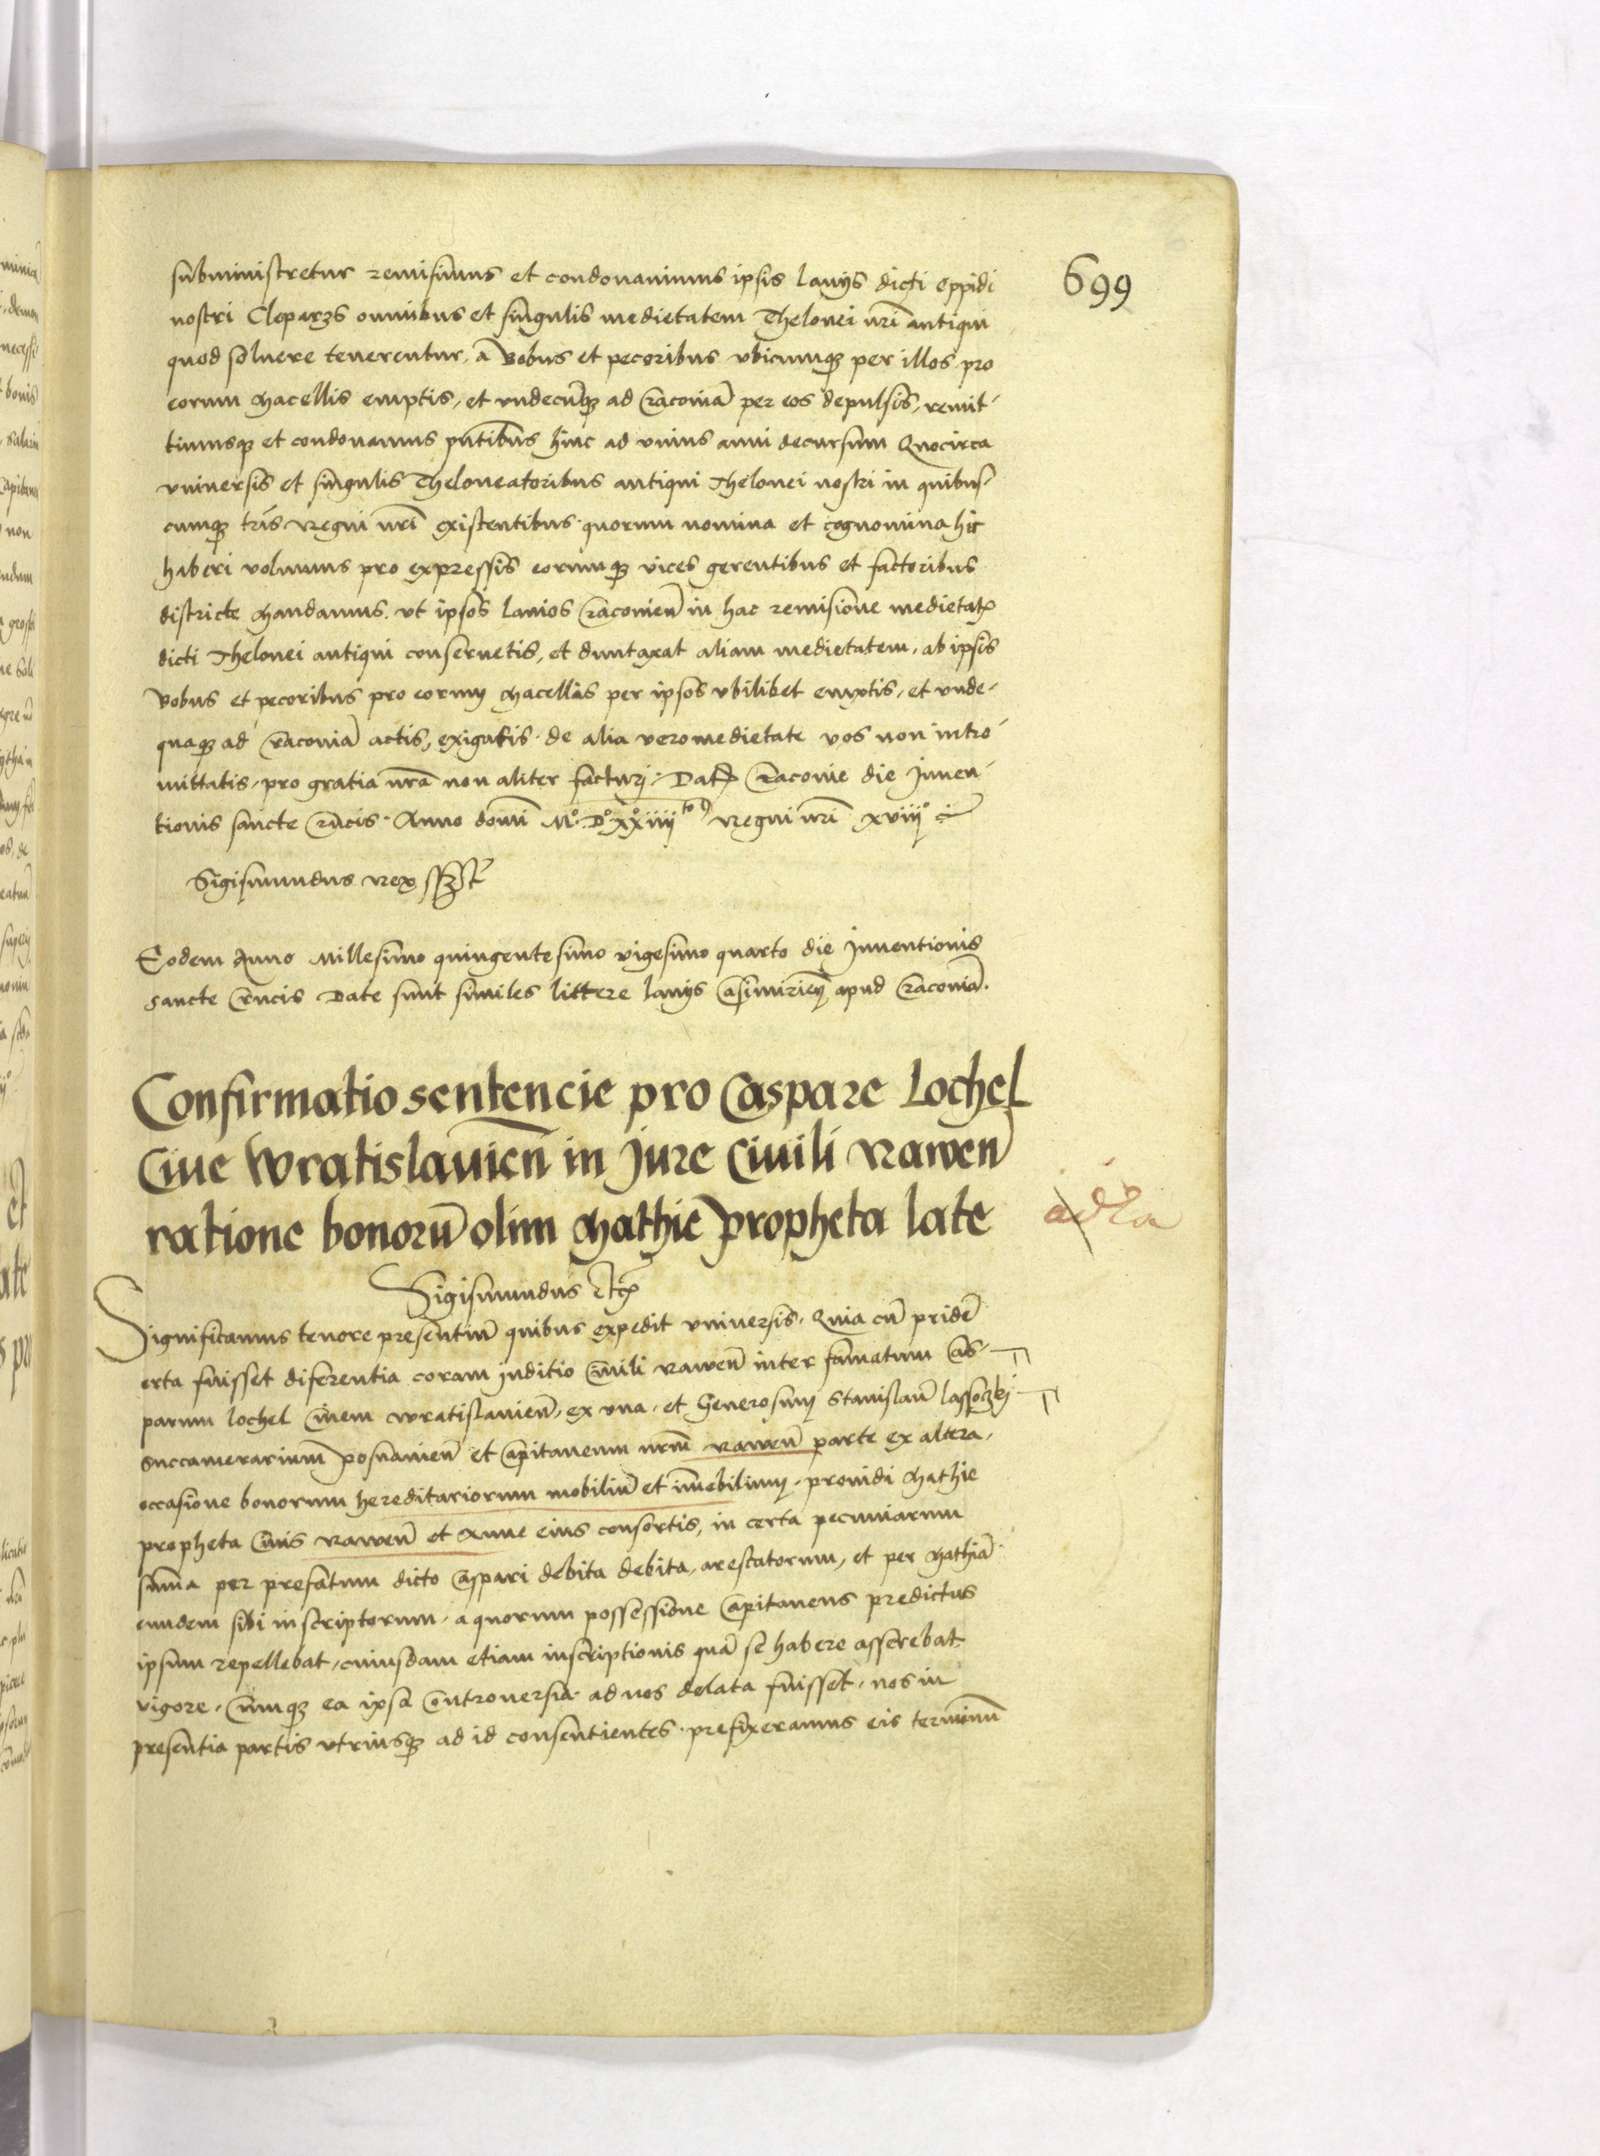 699
subministretur remisimus et condonavimus ipsis lanijs dicti oppidi
nostri Cleparzs omnibus et singulis medietatem Thelonei nr̃i antiqui
quod soluere tenerentur, a Bobus et pecoribus vbicumq3 per illos pro
eorum Macellis emptis, et vndecũq3 ad Cracouiã per eos depulsis, remit-
timusq3 et condonamus pñtibus hinc ad vnius anni decursum Quocirca
vniuersis et singulis Theloneatoribus antiqui Thelonei nostri in quibus-
cumq3 tris Regni nr̃i existentibus. quorum nomina et cognomina hic
haberi volumus pro expressis eorumq3 vices gerentibus et factoribus
districte Mandamus. vt ipsos lanios Cracouieñ in hac remisione medietatis
dicti Thelonei antiqui conseruetis, et duntaxat aliam medietatem, ab ipsis
bobus et pecoribus pro eorum Macellis per ipsos vbilibet emptis, et vnde-
quaq3 ad Cracouiã actis, exigatis. de alia vero medietate vos non intro-
mittatis, pro gratia nr̃a non aliter facturj. Datũ Cracouie die Inuen-
tionis sancte Crucis. Anno domĩ M° D° xxiiii to Regni nr̃i xviij°
Sigismundus Rex sszt
Eodem Anno Millesimo quingentesimo vigesimo quarto die Inuentionis
sancte Crucis Date sunt similes littere lanijs Casimirieñ apud Cracouiã.
Confirmatio sentencie pro Caspare Lochel
Ciue Wratislauieñ in Jure Ciuili Raweñ
ratione bonorũ olim Mathie propheta late
adla
Sigismundus etc
Significamus tenore presentiũ quibus expedit vniuersis. Quia cũ pridẽ
orta fuisset diferentia coram Juditio Ciuili Raweñ inter famatum Cas-
parum lochel Ciuem Wratislauieñ, ex vna. et Generosum Stanislaũ lassoczkj
succamerarium Posnanieñ et Capitaneum nr̃m Raweñ parte ex altera,
occasione bonorum hereditariorum mobiliũ et im̃obilium. prouidi Mathie
propheta Ciuis Raweñ et Anne eius consortis, in certa pecuniarum
sum̃a per prefatum dicto Caspari debita debita, arestatorum, et per Mathiã
eundem sibi inscriptorum. a quorum possessione Capitaneus predictus
ipsum repellebat, cuiusdam etiam inscriptionis quã se habere asserebat
vigore. Cumq3 ea ipsa Controuersia ad nos delata fuisset. nos in
presentia partis vtriusq3 ad id consentientes. prefixeramus eis terminũ